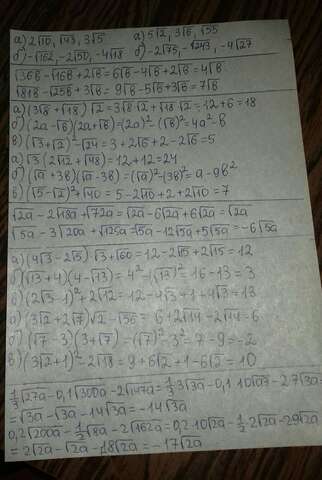 а) 2√10, √43, 3√5 а) 5√2, 3√6, √55
б) -√162, -2√50, -4√18 б) -2√75, -√243, -9√27
√36в - √16в + 2√в = 6√в - 4√в + 2√в = 4√в
√81в - √25в + 3√в = 9√в - 5√в + 3√в = 7√в
а) (3√8 + √18) √2 = 3√8 √2 + √18 √2 = 12 + 6 = 18
б) (2а - √в)(2а + √в) = (2а)² - (√в)² = 4а² - в
в) (√3 + √2)² - √24 = 3 + 2√6 + 2 - 2√6 = 5
а) √3 (2√12 + √48) = 12 + 12 = 24
б) (√а + 3в)(√а - 3в) = (√а)² - (3в)² = а - 9в²
в) (√5 - √2)² + √40 = 5 - 2√10 + 2 + 2√10 = 7
√2а - 2√18а + √72а = √2а - 6√2а + 6√2а = √2а
√5а - 3√20а + √125а = √5а - 12√5а + 5√5а = -6√5а
а) (4√3 - 2√5) √3 + √60 = 12 - 2√15 + 2√15 = 12
б) (√13 + 4)(4 - √13) = 4² - (√13)² = 16 - 13 = 3
в) (2√3 - 1)² + 2√12 = 12 - 4√3 + 1 + 4√3 = 13
а) (3√2 + 2√7) √2 - √56 = 6 + 2√14 - 2√14 = 6
б) (√7 - 3)(3 + √7) = (√7)² - 3² = 7 - 9 = -2
в) (3√2 + 1)² - 2√18 = 9 + 6√2 + 1 - 6√2 = 10
1/3 √27а - 0,1 √300а - 2√147а = 1/3 · 3√3а - 0,1 · 10√3а - 2 · 7√3а =
= √3а - √3а - 14√3а = -14√3а
0,2√200а - 1/2 √8а - 2√162а = 0,2 · 10√2а - 1/2 · 2√2а - 2 · 9√2а
= 2√2а - √2а - 18√2а = -17√2а